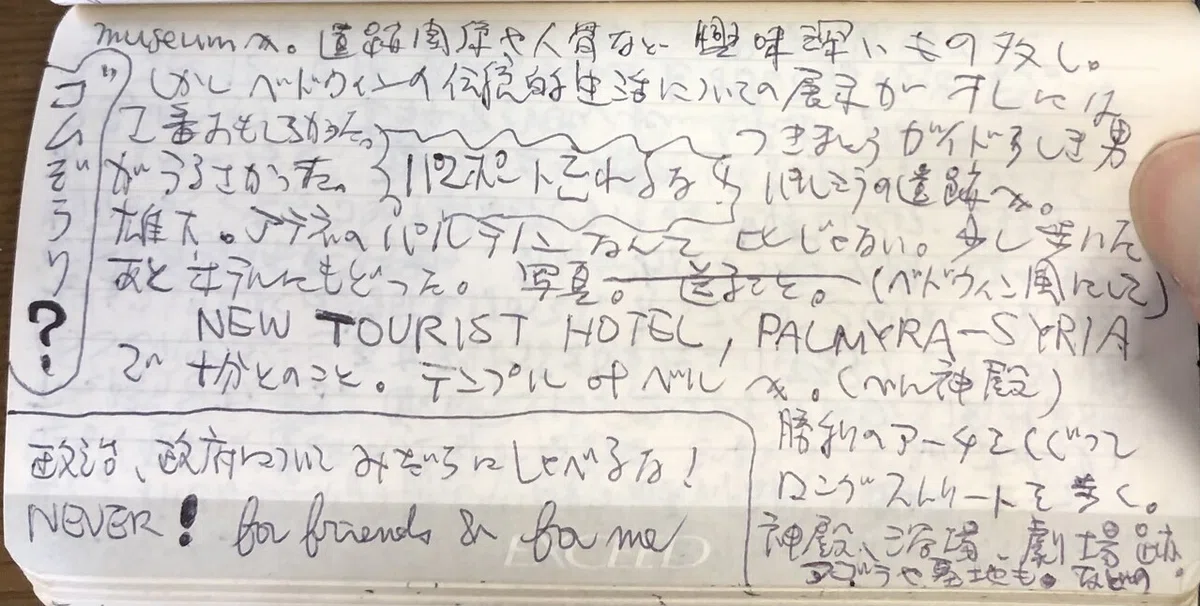 museumへ。遺跡関係や人骨など興味深いもの多し。
しかしベドウィンの伝統的生活についての展示がオレには
1番おもしろかった。つきまとうガイドらしき男
がうるさかった。パルミラの遺跡へ。
パスポートとわるな
雄大。アテネのパルテノンなんて比じゃない。少し歩いた
あとホテルにもどった。写真。送ること。(ベドウィン風にして)
NEW TOURIST HOTEL, PALMYRA-SYRIA
で十分とのこと。テンプル of ベルへ。(ベル神殿)
ゴムぞうり?
勝利のアーチをくぐって
ロングストリートを歩く。
神殿、浴場、劇場跡、
アゴラや墓地も。などの
政治、政府についてみだらにしゃべるな!
NEVER! for friends & for me
EXCEED